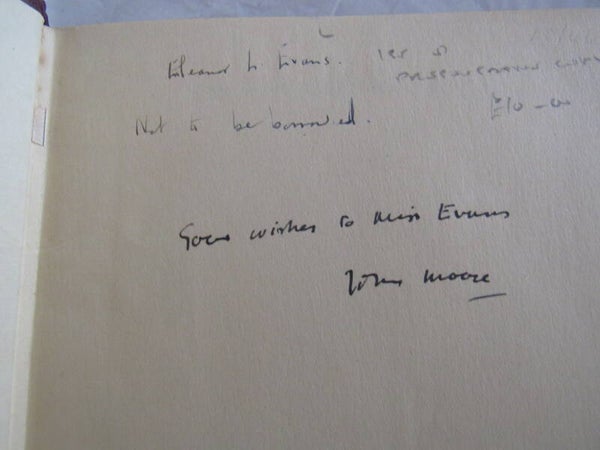 Eleanor L. Evans. 1st
PRESENTATION COPY
Not to be borrowed. £10-00
Good wishes to Miss Evans
John Moore